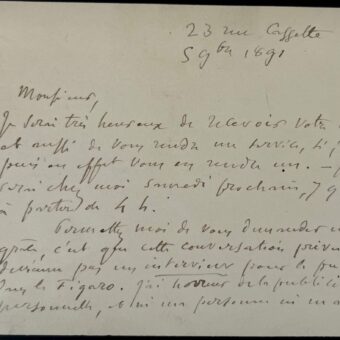 23 rue Cassette
5 9bre 1891
Monsieur,
Je serai très heureux de recevoir votre
et aussi de vous rendre un service, si je
puis en effet vous en rendre un. —
serai chez moi samedi prochain, 7 9
à partir de 4 h.
Permettez moi de vous demander une
grâce, c'est que cette conversation privée
devienne pas un interview pour le
le Figaro. J'ai horreur de la publicité
personnelle, et ni ma personne ni m